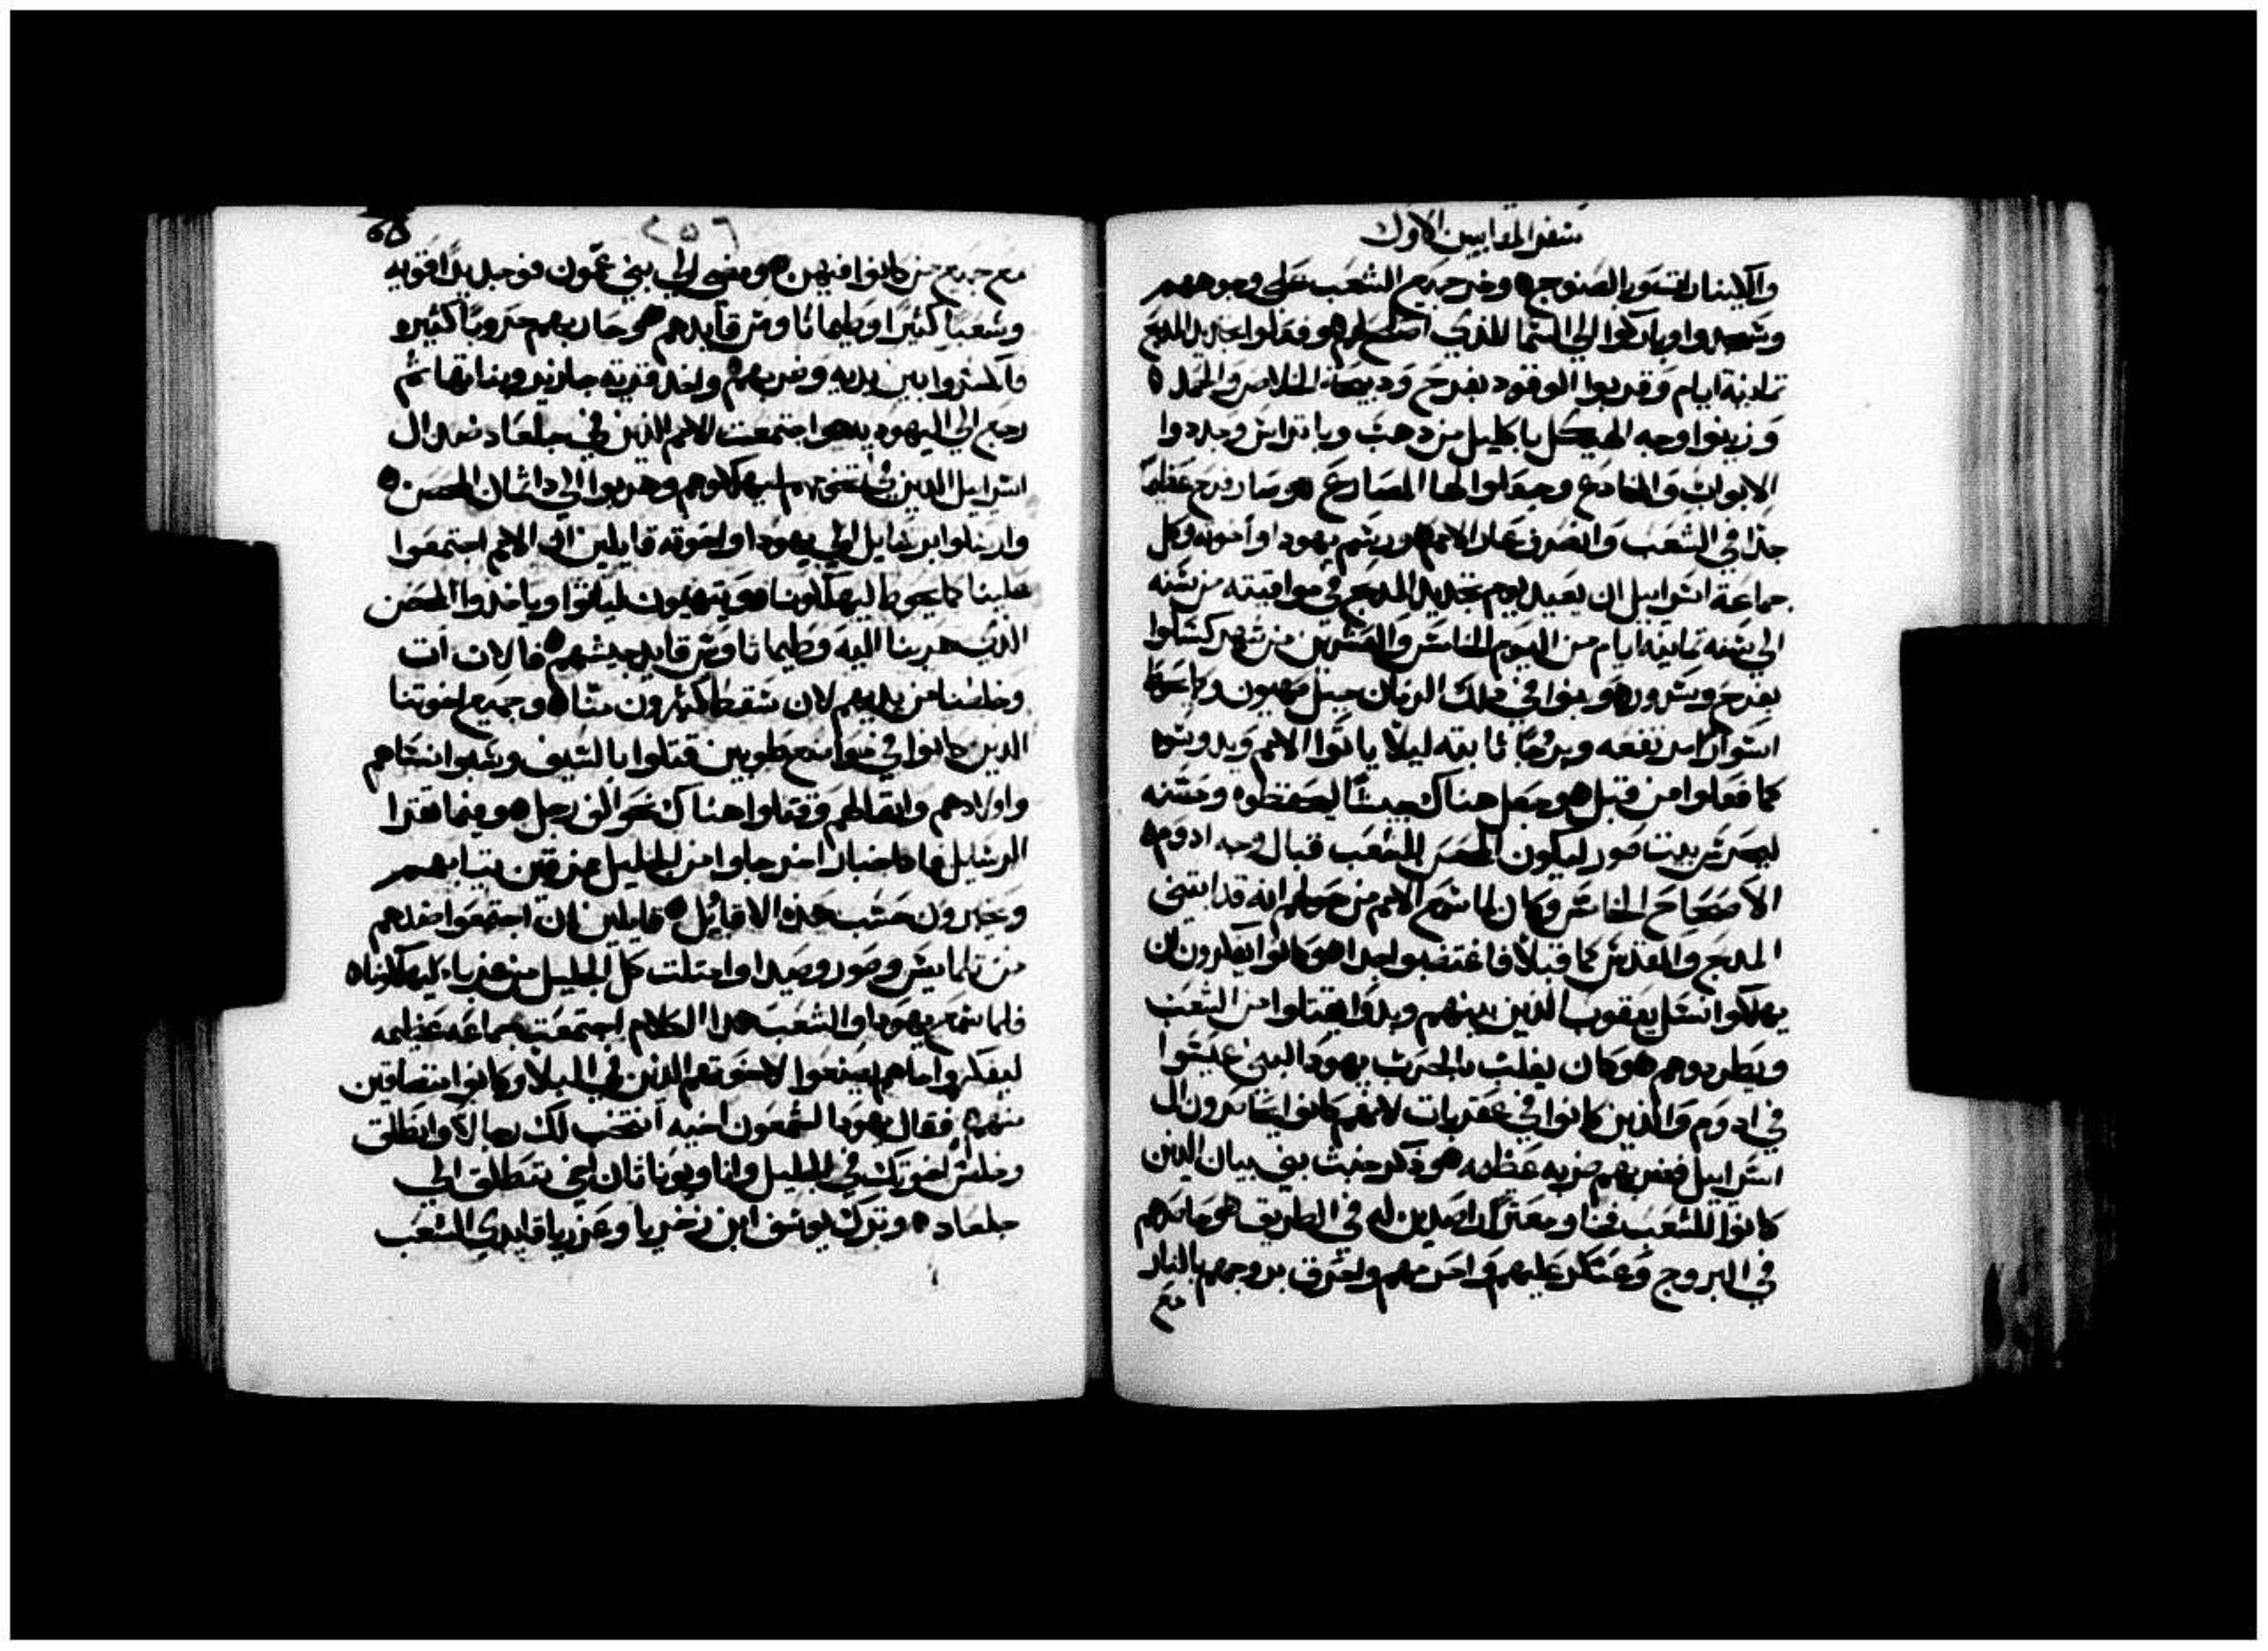 سفر المقابيين الاول
والكينارات وبالصنوج ٥ وخر جميع الشعب على وجوههم
وسجدوا وباركوا الى السما للذي اصلح لهم ٥ وفعلوا تجديد المدبح
تمانية ايام وقربوا الوقود بفرح ودبيحة الخلاص والحمد ٥
وزينوا وجه الهيكل باكليل من دهب وباتراس وجددوا
الابواب والمخادع وجعلوا لها المصارع ٥ وصار فرح عظيم
جدا في الشعب وانصرف عار الامم ٥ ورسم يهودا واخوته وكل
جماعة اسراييل ان يعيد يوم تجديد المدبح في مواقيته من سنه
الى سنه تمانية ايام من اليوم الخامس والعشرين من شهر كسلوا
بفرح وسرور ٥ وبنوا في دلك الزمان جبل صهيون وكما يحوط
اسوارا مرتفعه وبروجا ثابته ليلا ياتوا الامم ويدوسوه
كما فعلوا من قبل ٥ وجعل هناك جيشا ليحفظوه وحصنه
ليحرس بيت صور ليكون الحصن للشعب قبال وجه ادوم ٥
الاصحاح الخامس وكان لما سمع الامم من حولهم انه قد ابتنى
المدبح والمقدس كما قبلا فاغتضبوا جدا ٥ وكانوا يفكرون ان
يهلكوا نسل يعقوب الذين بينهم وبدوا يقتلوا من الشعب
ويطردوهم ٥ وكان يغلب بالحرب يهودا لبني عيسوا
في ادوم والذين كانوا في عقربات لانهم كانوا يحاصرون ال
اسراييل فضربهم ضربه عظيمه ٥ وذكر خبث بني بيان الذين
كانوا للشعب فخا ومعثرا راصدين له في الطريق ٥ وحاصرهم
في البروج وعسكر عليهم واحرمهم واحرق بروجهم بالنار
مع
٢٥٦
مع جميع من كانوا فيهن ٥ ومضى الى بني عمون فوجد يدا قويه
وشعبا كثيرا وطيماثاوس قايدهم ٥ وحاربهم حروبا كثيره
فانكسروا بين يديه وضربهم ٥ واخد قرية جازير وبناتها ثم
رجع الى اليهوديه ٥ واجتمعت الامم الذين في جلعاد ضد ال
اسراييل الذين في تخومهم ليهلكوهم وهربوا الى داثمان الحصن ٥
وارسلوا برسايل الى يهودا واخوته قايلين ان الامم اجتمعوا
علينا كما يحوط ليهلكونا ٥ ويتهيون لياتوا وياخدوا الحصن
الذي هربنا اليه وطيماثاوس قايد جيشهم ٥ فالان ات
وخلصنا من يديهم لان سقط كثيرون منا ٥ وجميع اخوتنا
الذين كانوا في مواضع طوبين قتلوا بالسيف وسبوا نساهم
واولادهم واثقالهم وقتلوا هناك نحو الف رجل ٥ وبينما تقرا
الرسايل فها اخبار اخر جاوا من الجليل ممزقين تيابهم
ويخبرون حسب هذه الاقاويل ٥ قايلين ان اجتمعوا ضدهم
من تلمايس وصور وصيدا وامتلت كل الجليل من غربا ليهلكونا ٥
فلما سمع يهودا والشعب هذا الكلام اجتمعت جماعه عظيمه
ليفكروا ماهم يصنعوا لاخوتهم الذين في البلا وكانوا متضايقين
منهم ٥ فقال يهودا لشمعون اخيه انتخب لك رجالا وانطلق
وخلص اخوتك في الجليل وانا ويوناثان اخي ننطلق الى
جلعاد ٥ وترك يوسف ابن زخريا وعزريا قايدي الشعب